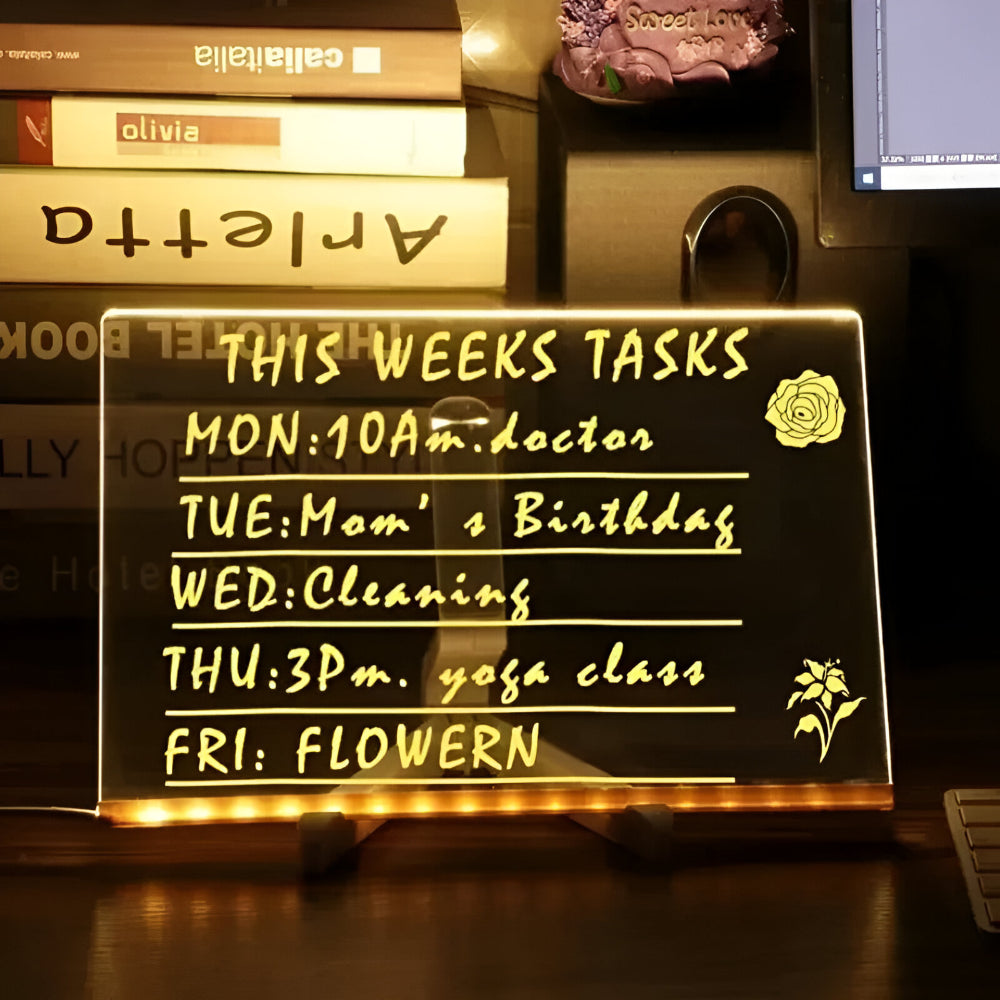 www.
caliaitalia
olivia
Arletta
Sweet Love
THE HOTEL BOOK
THIS WEEKS TASKS
MON:10Am.doctor
TUE:Mom's Birthdag
WED:Cleaning
THU:3Pm. yoga class
FRI: FLOWERN